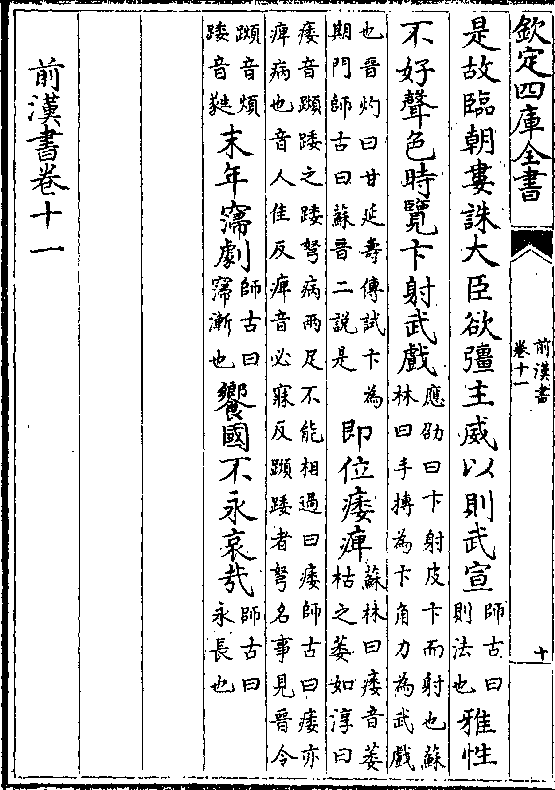 欽定四庫全書
前漢書
卷十一
十
是故臨朝婁誅大臣欲彊主威以則武宣
師古曰
則法也
雅性
不好聲色時覽卞射武戲
應劭曰卞射皮卞而射也蘇
林曰手搏為卞角力為武戲
也晉灼曰甘延壽傳試卞為
期門師古曰蘇晉二説是
即位痿痺
蘇林曰痿音萎
枯之萎如淳曰
痿音蹞踒之踒弩病兩足不能相過曰痿師古曰痿亦
痺病也音人佳反痺音必寐反蹞踒者弩名事見晉令
蹞音煩
踒音蕤
末年寖劇
師古曰
寖漸也
饗國不永哀哉
師古曰
永長也
前漢書卷十一